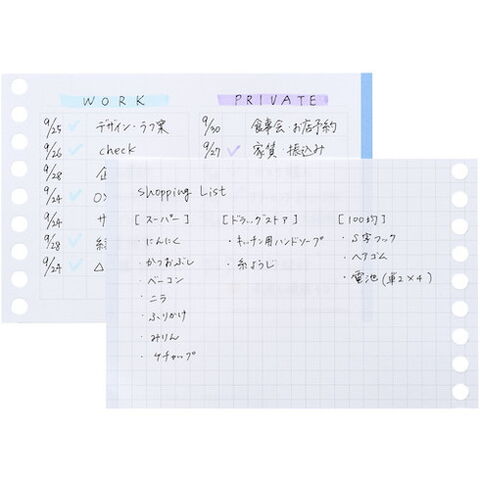 WORK
PRIVATE
9/25 デザイン・ラフ案
9/30 食事会・お店予約
9/26 check
9/27 家賃・振込み
9/28 企
9/24
9/24 サ
9/28
9/24 △
Shopping List
[スーパー]
・にんにく
・かつおぶし
・ベーコン
・ニラ
・ふりかけ
・みりん
・ケチャップ
[ドラッグストア]
・キッチン用ハンドソープ
・糸ようじ
[100均]
・S字フック
・ヘアゴム
・電池(単2×4)